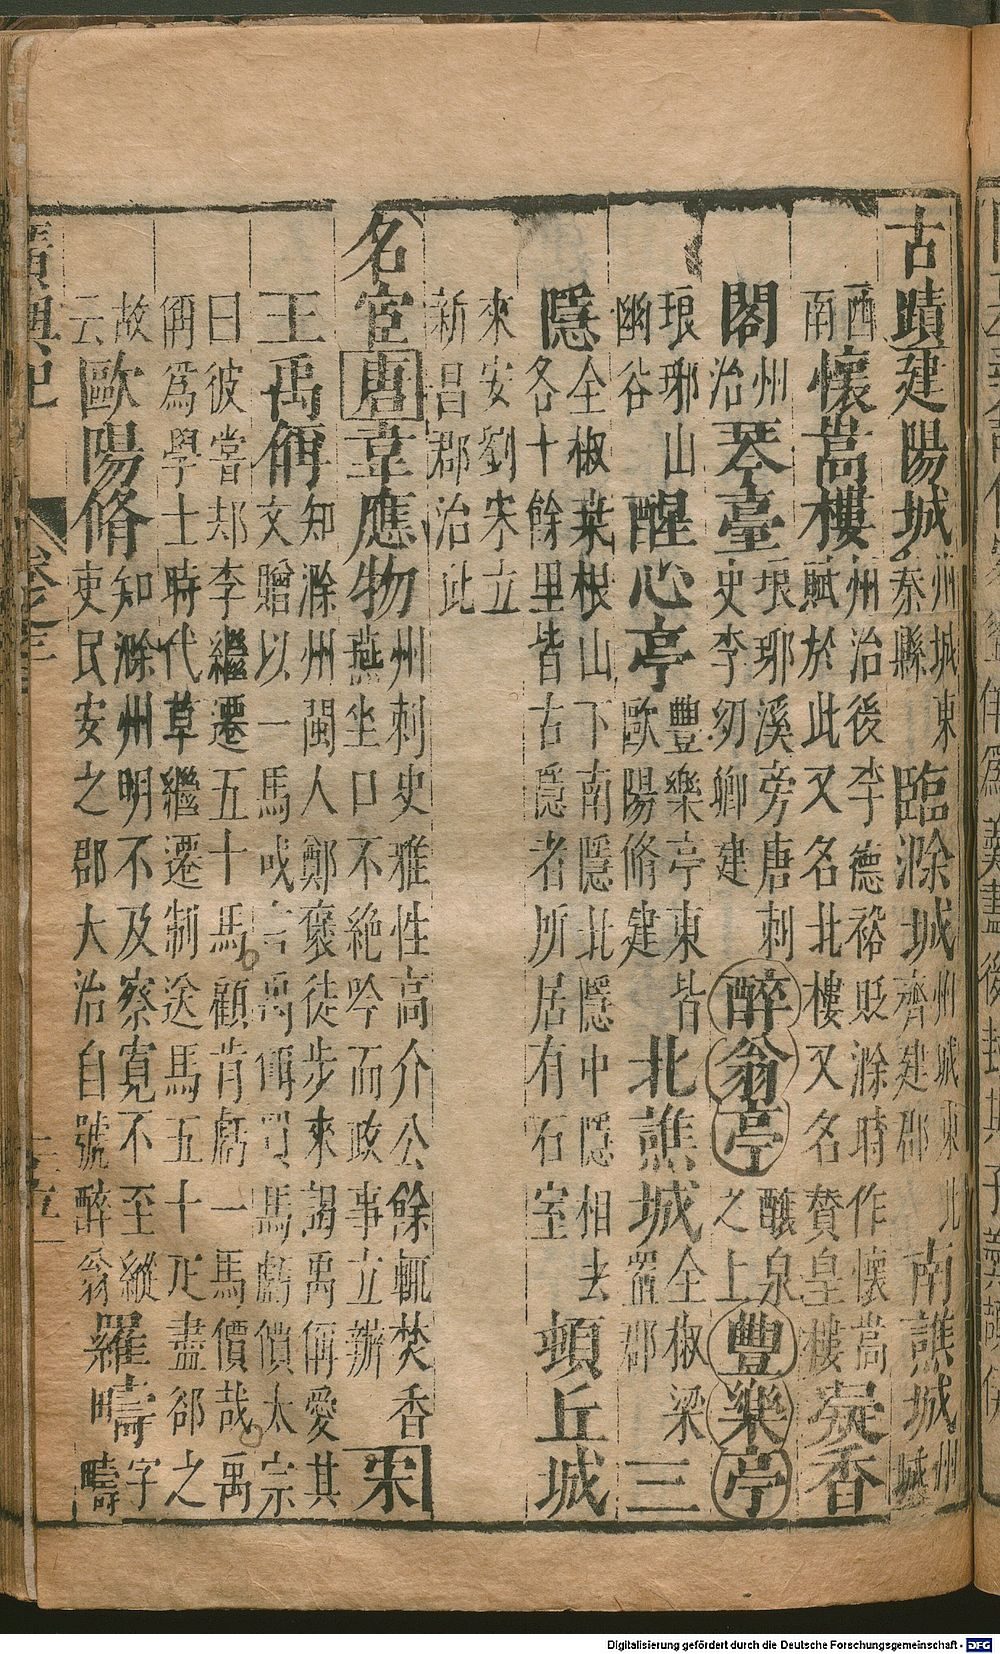 古蹟建陽城州城東秦縣臨滁城州城東北齊建郡南譙城州城
西南懷嵩樓州治後李德裕貶滁時作懷嵩賦於此又名北樓又名贊皇樓凝香
閣州治琴臺琅琊溪旁唐刺史李幼卿建醉翁亭釀泉之上豐樂亭
琅琊山幽谷醒心亭豐樂亭東皆歐陽脩建北譙城全椒梁置郡三
隱全椒菜根山下南隱北隱中隱相去各十餘里皆古隱者所居有石室頓丘城
來安劉宋立新昌郡治此
名宦唐韋應物州刺史雅性高介公餘輒焚香燕坐口不絶吟而政事立辦宋
王禹偁知滁州閩人鄭褒徒步來謁禹偁愛其文贈以一馬或言禹偁買馬虧價太宗
曰彼嘗却李繼遷五十馬顧肯虧一馬價哉禹偁爲學士時代草繼遷制送馬五十疋盡却之
故云歐陽脩知滁州明不及察寬不至縱吏民安之郡大治自號醉翁羅畸字疇
廣輿記 卷之三
Digitalisierung gefördert durch die Deutsche Forschungsgemeinschaft - DFG